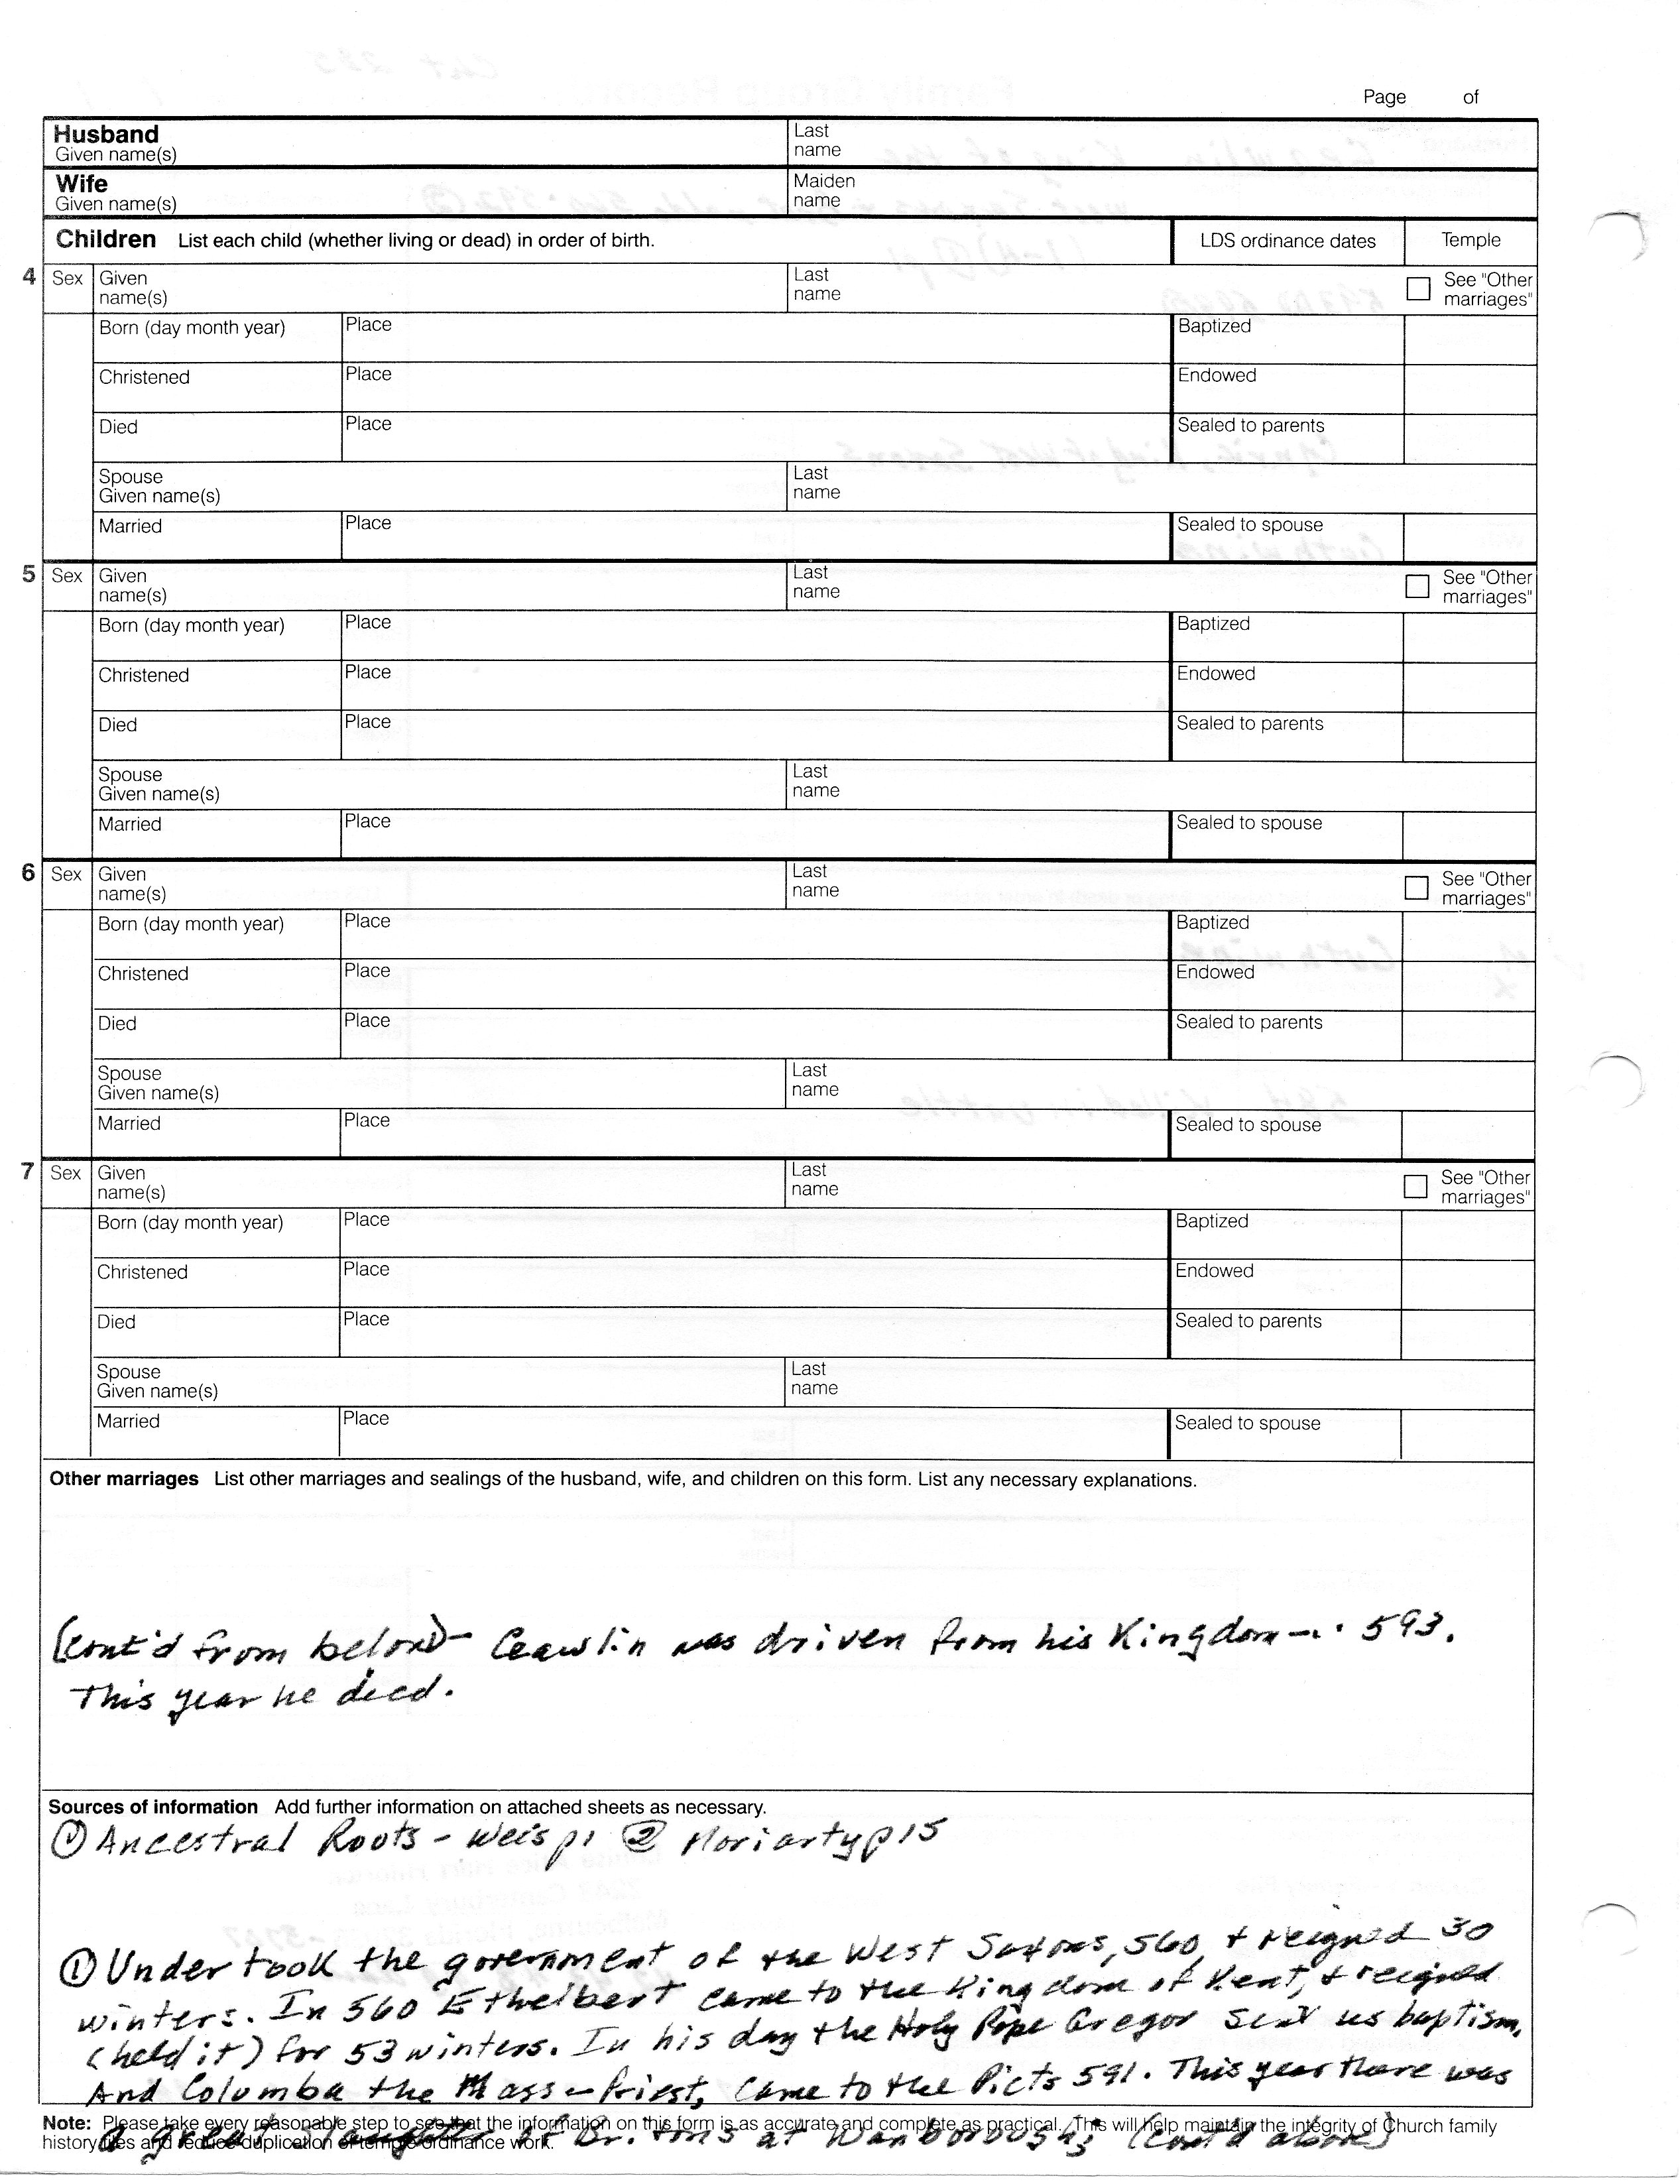 Page of
Husband Last
Given name(s) name
Wife Maiden
Given name(s) name
Children List each child (whether living or dead) in order of birth. LDS ordinance dates Temple
4 Sex Given Last See "Other
name(s) name marriages"
Born (day month year) Place Baptized
Christened Place Endowed
Died Place Sealed to parents
Spouse Last
Given name(s) name
Married Place Sealed to spouse
5 Sex Given Last See "Other
name(s) name marriages"
Born (day month year) Place Baptized
Christened Place Endowed
Died Place Sealed to parents
Spouse Last
Given name(s) name
Married Place Sealed to spouse
6 Sex Given Last See "Other
name(s) name marriages"
Born (day month year) Place Baptized
Christened Place Endowed
Died Place Sealed to parents
Spouse Last
Given name(s) name
Married Place Sealed to spouse
7 Sex Given Last See "Other
name(s) name marriages"
Born (day month year) Place Baptized
Christened Place Endowed
Died Place Sealed to parents
Spouse Last
Given name(s) name
Married Place Sealed to spouse
Other marriages List other marriages and sealings of the husband, wife, and children on this form. List any necessary explanations.
(cont'd from below)- Ceawlin was driven from his Kingdom-.. 593.
This year he died.
Sources of information Add further information on attached sheets as necessary.
① Ancestral Roots - Weis p1 ② Moriarty p15
① Undertook the government of the West Saxons, 560, & reigned 30
winters. In 560 Ethelbert came to the Kingdom of Kent, & reigned
(held it) for 53 winters. In his day the Holy Pope Gregor sent us baptism.
And Columba the Mass-Priest, came to the Picts 591. This year there was
a great slaughter of Britons at Wanborough; (cont'd above)
Note: Please take every reasonable step to see that the information on this form is as accurate and complete as practical. This will help maintain the integrity of Church family
history files and reduce duplication of temple ordinance work.